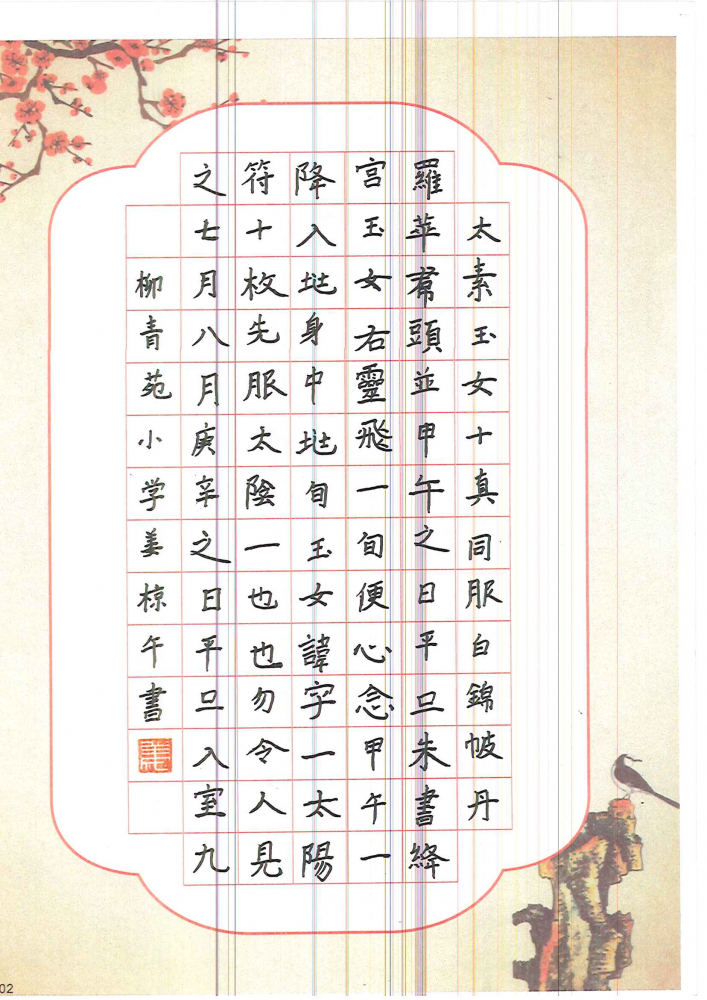 太素玉女十真同服白錦帔丹
羅華帬頭並甲午之日平旦朱書絳
宫玉女右靈飛一旬便心念甲午一
降入地身中地旬玉女諱字一太陽
符十枚先服太陰一也也勿令人見
之七月八月庚辛之日平旦入室九
柳青苑小学姜椋午書
02